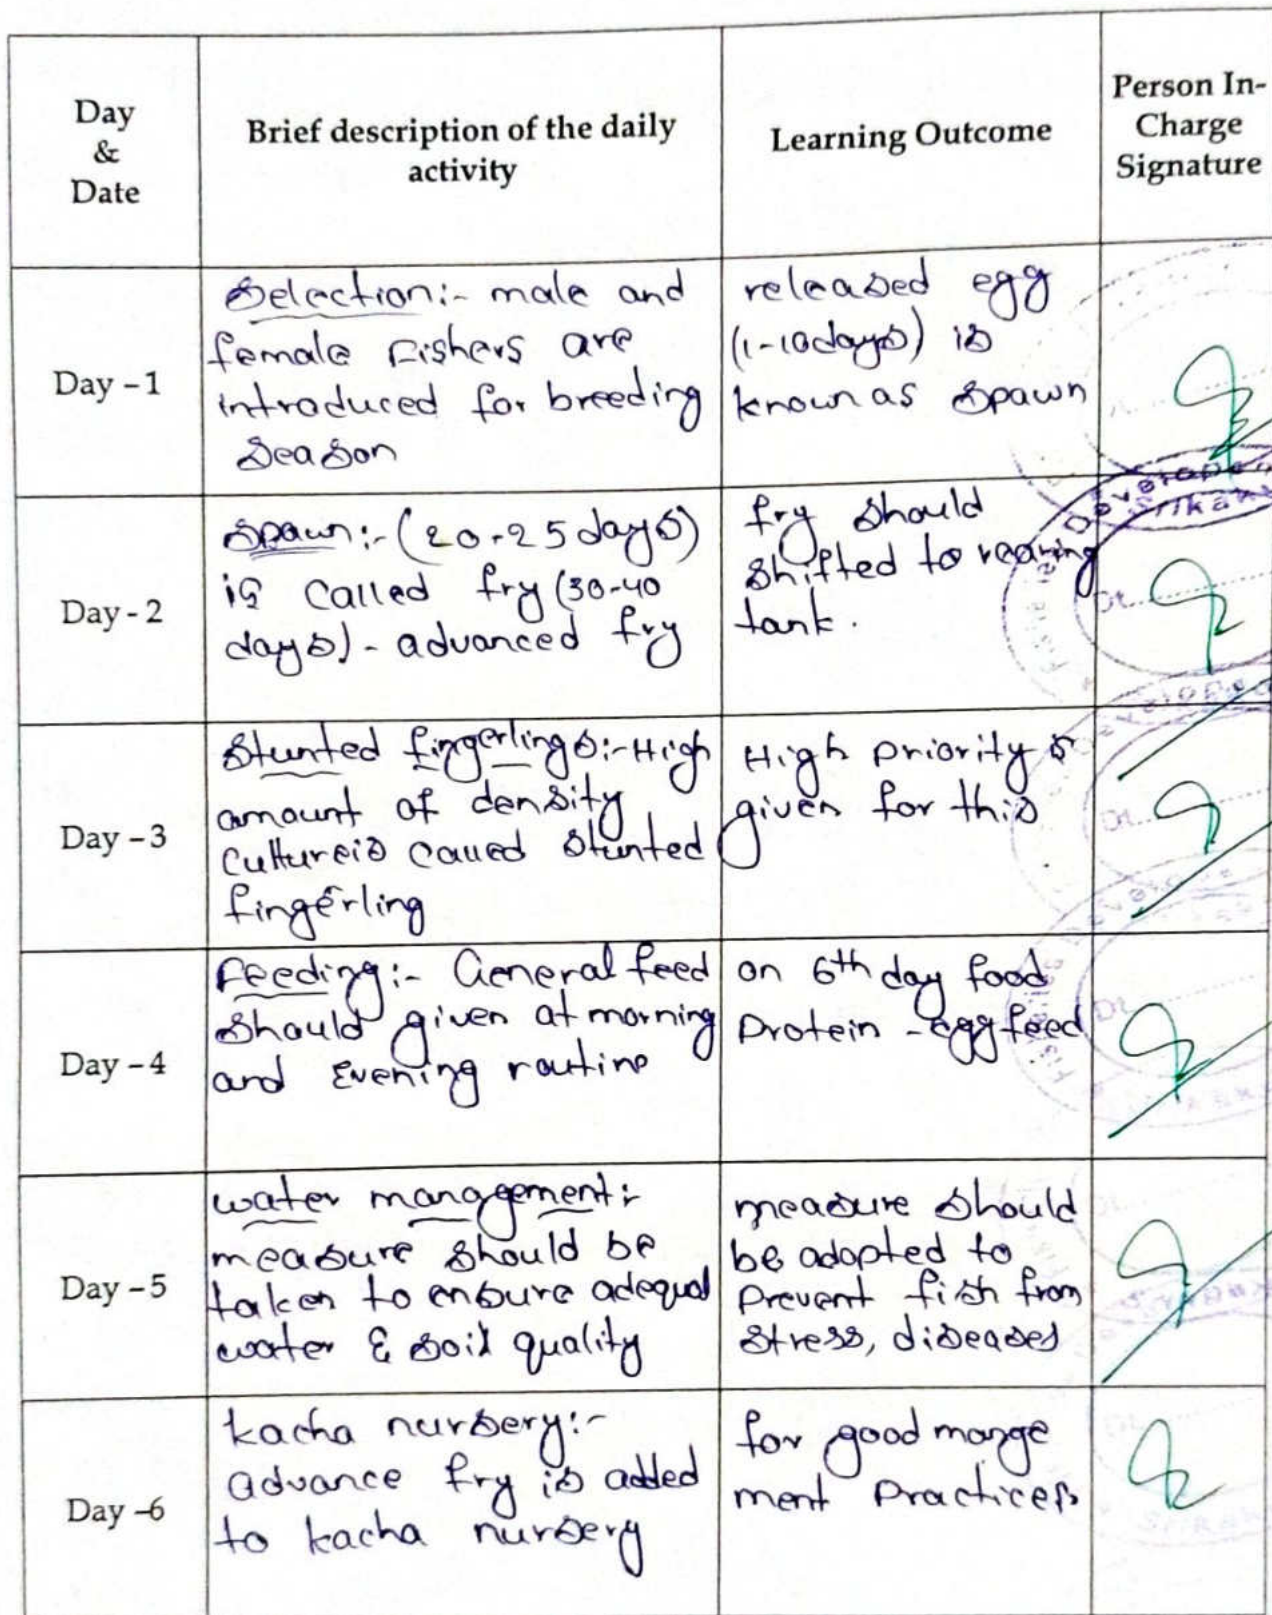 Day
&
Date
Brief description of the daily
activity
Learning Outcome
Person In-
Charge
Signature
Day - 1
Selection:- male and
female Fishers are
introduced for breeding
Season
released egg
(1-10days) is
known as Spawn
Day - 2
Spawn:- (20-25 days)
is called fry (30-40
days) - advanced fry
fry should
shifted to rearing
tank.
Day - 3
Stunted fingerlings:- High
amount of density
cultureis called Stunted
fingerling
High priority is
given for this
Day - 4
Feeding:- General feed
should given at morning
and Evening routine
on 6th day food
Protein - egg feed
Day - 5
water management:
measure should be
taken to ensure adequal
water & soil quality
measure should
be adopted to
prevent fish from
stress, diseases
Day -6
kacha nursery:-
advance fry is added
to kacha nursery
for good mange
ment practices